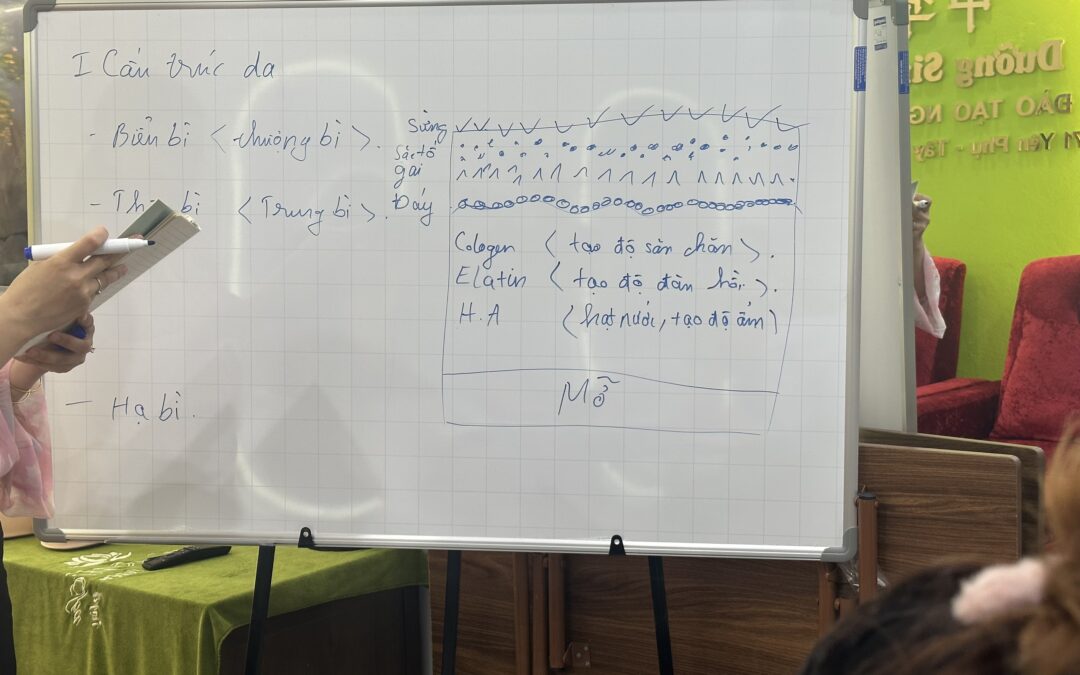 I Cấu trúc da
- Biểu bì < thượng bì >.
- bì < Trung bì >.
- Hạ bì.
Sừng
Sắc tố
gai
Đáy
Cologen < tạo độ săn chắn >.
Elatin < tạo độ đàn hồi >.
H.A (hạt nước, tạo độ ẩm)
Mỡ
Dưỡng
ĐÀO TẠO
Yên Phụ - Tây